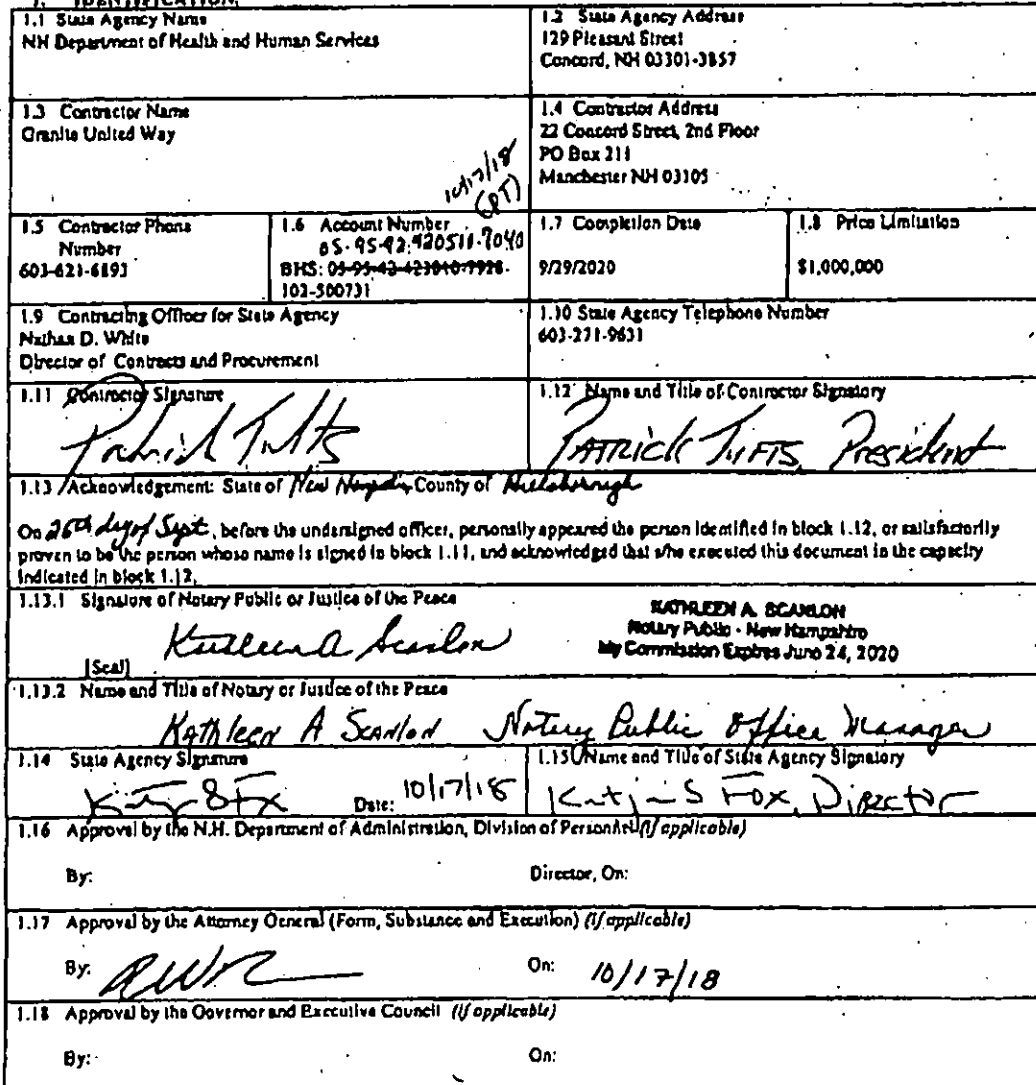 1. IDENTIFICATION.
1.1 State Agency Name
NH Department of Health and Human Services
1.2 State Agency Address
129 Pleasant Street
Concord, NH 03301-3857
1.3 Contractor Name
Granite United Way
10/17/18
(PT)
1.4 Contractor Address
22 Concord Street, 2nd Floor
PO Box 211
Manchester NH 03105
1.5 Contractor Phone
Number
603-621-6893
1.6 Account Number
05-95-92-920511-7040
BHS: 05-95-42-423010-7926-
102-500731
1.7 Completion Date
9/29/2020
1.8 Price Limitation
$1,000,000
1.9 Contracting Officer for State Agency
Nathan D. White
Director of Contracts and Procurement
1.10 State Agency Telephone Number
603-271-9631
1.11 Contractor Signature
Patrick Tufts
1.12 Name and Title of Contractor Signatory
PATRICK TUFTS, President
1.13 Acknowledgement: State of New Hampshire, County of Hillsborough
On 26th day of Sept, before the undersigned officer, personally appeared the person identified in block 1.12, or satisfactorily
proven to be the person whose name is signed in block 1.11, and acknowledged that s/he executed this document in the capacity
indicated in block 1.12.
1.13.1 Signature of Notary Public or Justice of the Peace
KATHLEEN A. SCANLON
Notary Public - New Hampshire
My Commission Expires June 24, 2020
Kathleen A Scanlon
[Seal]
1.13.2 Name and Title of Notary or Justice of the Peace
Kathleen A Scanlon Notary Public Office Manager
1.14 State Agency Signature
Date: 10/17/18
1.15 Name and Title of State Agency Signatory
Katja S Fox, Director
1.16 Approval by the N.H. Department of Administration, Division of Personnel (if applicable)
By: Director, On:
1.17 Approval by the Attorney General (Form, Substance and Execution) (if applicable)
By: On: 10/17/18
1.18 Approval by the Governor and Executive Council (if applicable)
By: On: